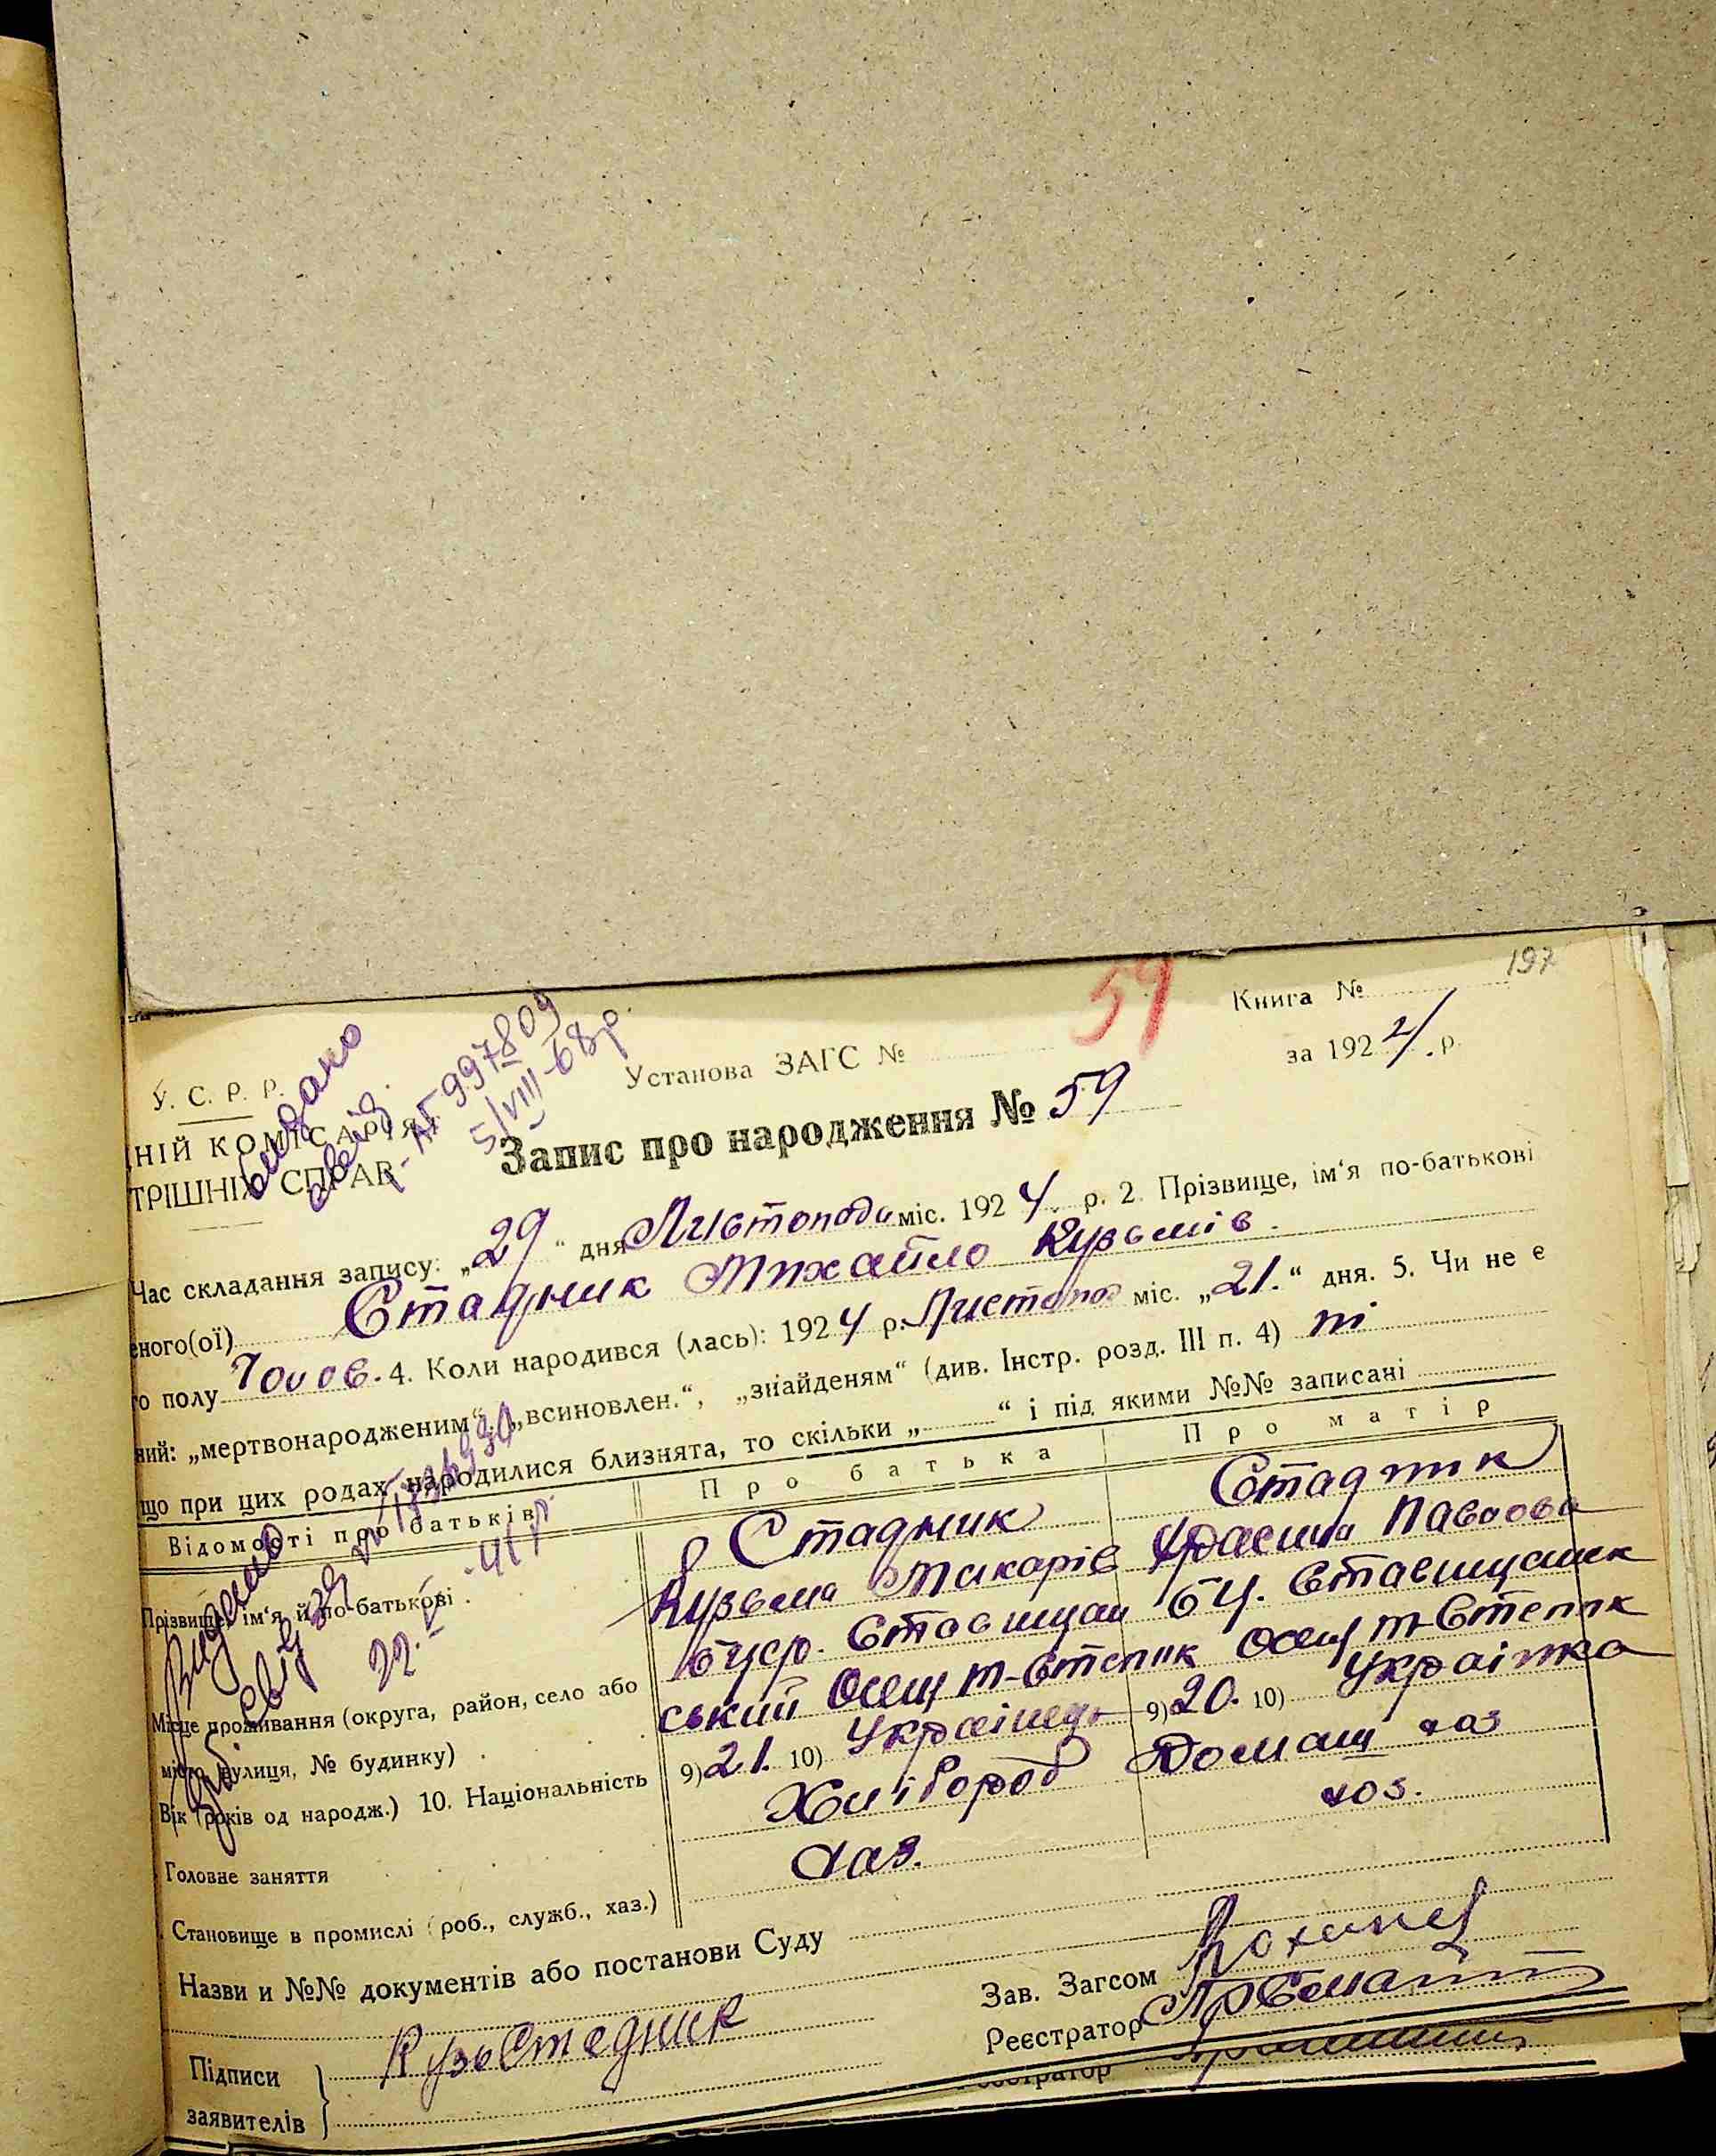 197
59
Книга №
за 1924 р.
У. С. Р. Р.
Установа ЗАГС №
НІЙ КОМІСАРІЯТ
ТРІШНІХ СПРАВ
видано
свід.
АГ 997809
5/VIII-68р.
Запис про народження № 59
Час складання запису: „29“ дня Листопада міс. 1924 р. 2. Прізвище, ім‘я по-батькові
еного(ої) Стадник Михайло Кузьмів.
го полу Чолов. 4. Коли народився (лась): 1924 р. Листопад міс. „21.“ дня. 5. Чи не є
ний: „мертвонародженим“, „всиновлен.“, „знайденям“ (див. Інстр. розд. III п. 4) ні
що при цих родах народилися близнята, то скільки „ “ і під якими №№ записані
Відомості про батьків
Про батька
Про матір
Видано
свід
22.V-41р.
Прізвище, ім‘я й по-батькові
Стадник
Кузьма Макарів
Стадник
Павлова
Місце проживання (округа, район, село або
місто, вулиця, № будинку)
Ставищан
ський Осещ м-Степок
БЦ. Ставищанск
Осещ м-Степок
Вік (років од народж.) 10. Національність
9) 21. 10) Українець
9) 20. 10) Українка
Головне заняття
Хлібороб
Домаш хаз
Становище в промислі (роб., служб., хаз.)
хаз.
хоз.
Назви и №№ документів або постанови Суду
Зав. Загсом
Реєстратор
Підписи
заявителів
Кузь Стадник